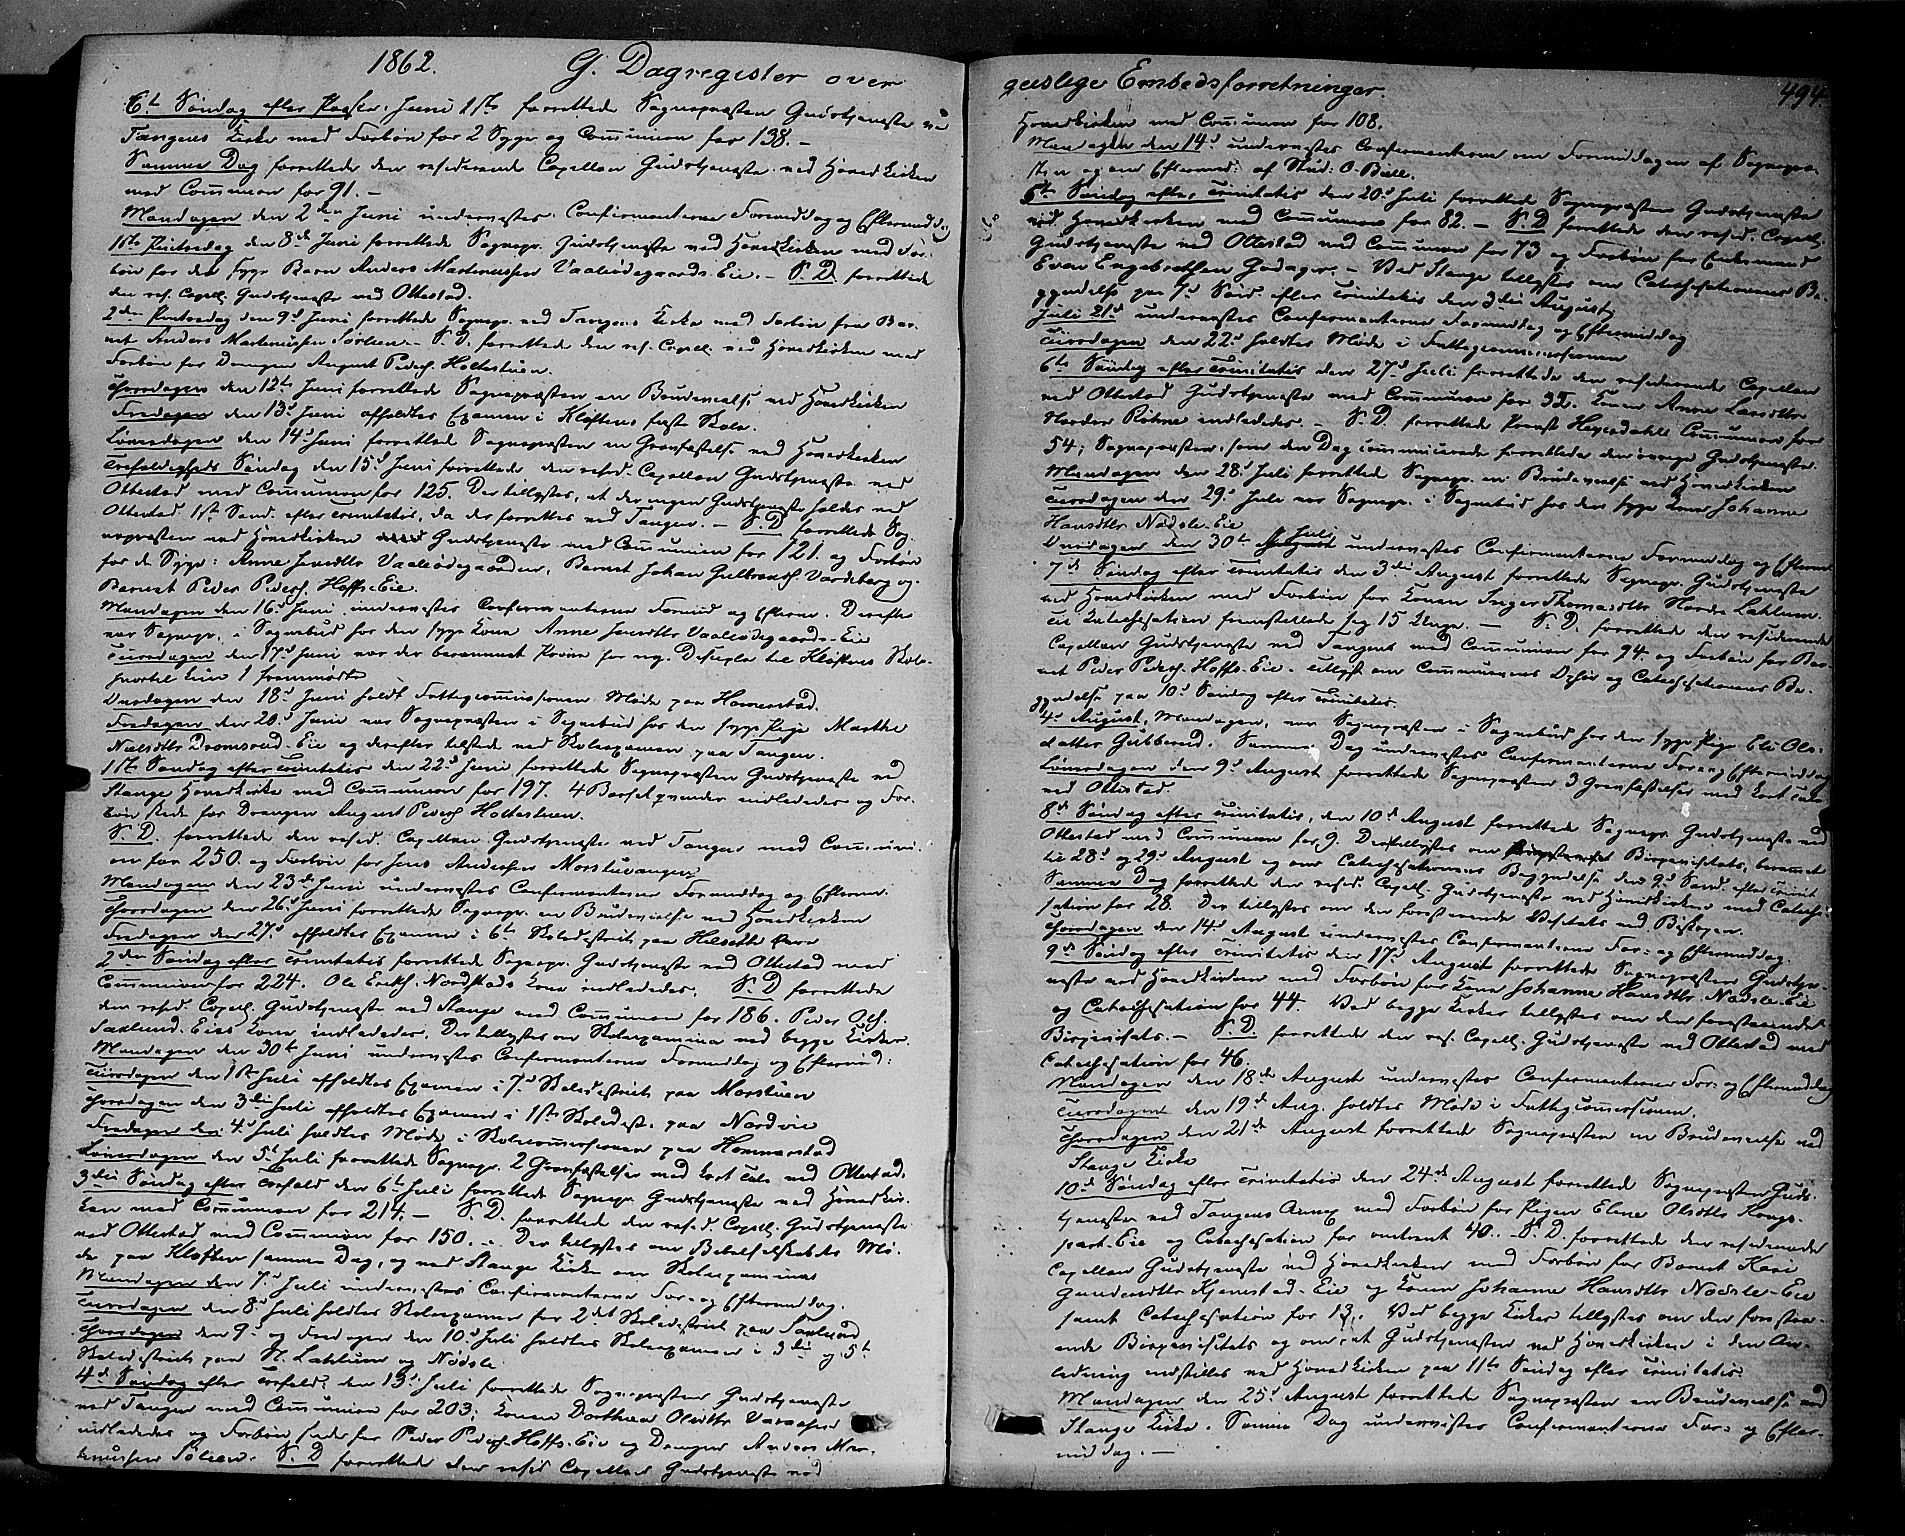 1862. G. Dagregister over
6te Søndag efter Paaske, Juni 1ste forrettede Sognepræsten Gudstjeneste ved
Tangens Kirke med Forbøn for 2 Syge og Communion for 138. -
Samme Dag forrettede den residerende Capellan Gudstjeneste ved Hovedkirken
med Communion for 91. -
Mandagen den 2den Juni undervistes Confirmanterne Formiddag og Eftermidd.
1ste Pintsedag den 8de Juni forrettede Sognepr. Gudstjeneste ved Hovedkirken med For-
bøn for det syge Barn Anders Martenussen Vaalødegaards-Eie. - S. D. forrettede
den res. Capell. Gudstjeneste ved Ottestad.
2den Pintsedag den 9d Juni forrettede Sognepr. ved Tangens Kirke med Forbøn for Bar-
net Anders Martenussen - S. D. forrettede den res. Capell. ved Hovedkirken med
Forbøn for Drengen August Peders. Holtestuen.
Thorsdagen den 12te Juni forrettede Sognepræsten en Brudevielse ved Hovedkirken
Fredagen den 13d Juni afholdtes Examen i Kløftens fast Skole.
Løverdagen den 14d Juni forrettede Sognepræsten en Gravfæstelse ved Hovedkirken
Trefoldigheds Søndag den 15d Juni forrettede den resid. Capellan Gudstjeneste ved
Ottestad med Communion for 125. Der tillystes, at der ingen Gudstjeneste holdes ved
Ottestad 1ste Sønd. efter Trinitatis, da der forrettes ved Tangen. - S. D. forrettede Sog-
nepræsten ved Hovedkirken Gudstjeneste med Communion for 121. og Forbøn
for de Syge: Anne Jensdtr Vaalødegaarden, Barnet Johan Gulbrands. Vardeberg og
Barnet Peder Peders. Hoffs-Eie.
Mandagen den 16d Juni undervistes Confirmanterne Formid og Efterm. Derefter
var Sognepr. i Sognebud hos den syge Kone Anne Jensdtr Vaalødegaards-Eie
Tirsdagen den 17d Juni var der berammet Prøve for ny Disciple til Kløftens Skole
hvortil kun 1 fremmødte
Onsdagen den 18d Juni holdt Fattigcommissionen Møde paa Hammerstad.
Fredagen den 20d Juni var Sognepræsten i Sognebud hos den syge Pige Marthe
Nielsdtr Dromsrud-Eie og derefter tilstede ved Skoleexamen paa Tangen.
1ste Søndag efter Trinitatis den 22d Juni forrettede Sognepræsten Gudstjeneste ved
Stange Hovedkirke med Communion for 197. 4 Barselqvinder indlededes og For-
bøn skede for Drengen August Peders. Holtestuen.
S. D. forrettede den resid. Capellan Gudstjeneste ved Tangen med Communi-
on for 250. og Forbøn for Jens Andersen Morstuvangen.
Mandagen den 23de Juni undervistes Confirmanterne Formiddag og Efterm.
Thorsdagen den 26d Juni forrettede Sognepr. en Brudevielse ved Hovedkirken
Fredagen den 27d afholdtes Examen i 6te Skoledistrict paa Helsethe
2den Søndag efter Trinitatis forrettede Sognepr. Gudstjeneste ved Ottestad med
Communion for 224. Ole Eriks. Nordstads Kone indlededes. S. D. forrettede
den resid. Capell. Gudstjeneste ved Stange med Communion for 186. Peder Ols.
Saxlund-Eies Kone indlededes. Der tillystes om Skoleexamina ved begge Kirker.
Mandagen den 30te Juni undervistes Confirmanterne Formiddag og Eftermid:
Tirsdagen den 1ste Juli afholdtes Examen i 7d Skoledistrict paa Morstuen
Thorsdagen den 3die Juli afholdtes Examen i 1ste Skoledist. paa Nordvie
Fredagen den 4d Juli holdtes Møde i Skolecommissionen paa Hammerstad
Løverdagen den 5te Juli forrettede Sognepr. 2 Gravfæstelser med kort Tale ved Ottestad.
3die Søndag efter Trefold den 6te Juli forrettede Sognepr. Gudstjeneste ved Hovedkir-
ken med Communion for 214. - S. D. forrettede den resid. Capell. Gudstjeneste
ved Ottestad med Communion for 150. - Der tillystes om Bibelselskabets Mø-
de paa Kløften samme Dag, og ved Stange Kirke om Skoleexaminas
Mandagen den 7d Juli undervistes Confirmanterne For- og Eftermiddag.
Tirsdagen den 8d Juli holdtes Skoleexamen for 2det Skoledistrict paa Saxlund
Thorsdagen den 9d og Fredagen den 10d Juli holdtes Skoleexamen i 3die og 5te
Skoledistrict paa N. Lahlum og Nødsle.
4de Søndag efter Trefold. den 13d Juli forrettede Sognepræsten Gudstjeneste
ved Tangen med Communion for 203; Konen Dorthea Olsdtr
indlededes og Forbøn skede for Peder Peders. Hoffs-Eie og Drengen Anders Mar-
tenussen S. D. forrettede den resid Capellan Gudstjeneste ved
geistlige Embedsforretninger. 494.
Hovedkirken med Communion for 108.
Mandagen den 14d undervistes Confirmanterne om Formiddagen af Sognepræ-
sten og om Eftermid: af Stud. O. Bull.
5te Søndag efter Trinitatis den 20d Juli forrettede Sognepræsten Gudstjeneste
ved Hovedkirken med Communion for 82. - S. D. forrettede den resid. Capell.
Gudstjeneste ved Ottestad med Communion for 73 og Forbøn for Enkemand
Even Engebrethsen Godager. - Ved Stange tillystes om Catechisationernes Be-
gyndelse paa 7d Sønd. efter Trinitatis den 3die August
Juli 21d undervistes Confirmanterne Formiddag og Eftermiddag
Tirsdagen den 22d holdtes Møde i Fattigcommissionen
6te Søndag efter Trinitatis den 27d Juli forrettede den residerende Capellan
ved Ottestad Gudstjeneste med Communion for 32. Konen Anne Larsdtr
Nordre Røhne indlededes. - S. D. forrettede Provst Heyerdahl Communion for
54; Sognepræsten, som den Dag communicerede forrettede den øvrige Gudstjeneste.
Mandagen den 28d Juli forrettede Sognepr. en Brudevielse ved Hovedkirken
Tirsdagen den 29d Juli var Sognepr. i Sognebud hos den syge Kone Johanne
Hansdtr Nødsle-Eie
Onsdagen den 30te Juli undervistes Confirmanterne Formiddag og Efterm
7de Søndag efter Trinitatis den 3die August forrettede Sognepr. Gudstjeneste
ved Hovedkirken med Forbøn for Konen Inger Thomasdtr Nordre Lahlum.
til Katechisation fremstillede sig 15 Unge. - S. D. forrettede den residerende
Capellan Gudstjeneste ved Tangens med Communion for 94. og Forbøn for Bar-
net Peder Peders. Hoffs-Eie. tillyst om Communionens Ophør og Catechisationernes Be-
gyndelse paa 10d Søndag efter Trinitatis.
4d August, Mandagen, var Sognepræsten i Sognebud hos den syge Pige Eli Ols-
datter Gubberud. Samme Dag undervistes Confirmanterne For- og Eftermiddag
Løverdagen den 9d August forrettede Sognepræsten 3 Gravfæstelser med kort Tale
ved Ottestad.
8de Søndag efter Trinitatis, den 10d August forrettede Sognepr. Gudstjeneste ved
Ottestad med Communion for 9. Der tillystes om Bispevisitats, berammet
til 28d og 29d August og om Catechisationens Begyndelse den 9d Sønd. efter Trinit
Samme Dag forrettede den resid. Capell. Gudstjeneste ved Hovedkirken med Catechi-
sation for 28. Der tillystes om den forestaaende Visitats ved Bispen.
Thorsdagen den 14d August undervistes Confirmanterne For- og Eftermiddag.
9de Søndag efter Trinitatis den 17d August forrettede Sognepræsten Gudstje-
neste ved Hovedkirken med Forbøn for Kone Johanne Hansdtr. Nødsle-Eie
og Catechisation for 44. Ved begge Kirker tillystes om den forestaaende
Bispevisitats. - S. D. forrettede den res. Capell. Gudstjeneste ved Ottestad med
Catechisation for 46.
Mandagen den 18de August undervistes Confirmanterne For- og Eftermiddag
Tirsdagen den 19d Aug. holdtes Møde i Fattigcommissionen.
Thorsdagen den 21de August forrettede Sognepræsten en Brudevielse ved
Stange Kirke
10d Søndag efter Trinitatis den 24de August forrettede Sognepræsten Guds-
tjeneste ved Tangens Annex med Forbøn for Pigen Eline Olsdtr Kongs-
part-Eie og Catechisation for omtrent 40. - S. D. forrettede den residerende
Capellan Gudstjeneste ved Hovedkirken med Forbøn for Barnet Kari
Gundersdtr Kjemstad-Eie og Konen Johanne Hansdtr Nødsle-Eie
samt Catechisation for 13. Ved begge Kirker tillystes om den forestaa-
ende Bispevisitats og om, at Gudstjenesten ved Hovedkirken i den An-
ledning indstilles ved Hovedkirken paa 11te Søndag efter Trinitatis.
Mandagen den 25d August forrettede Sognepræsten en Brudevielse ved
Stange Kirke. Samme Dag undervistes Confirmanterne For- og Efter-
middag. -